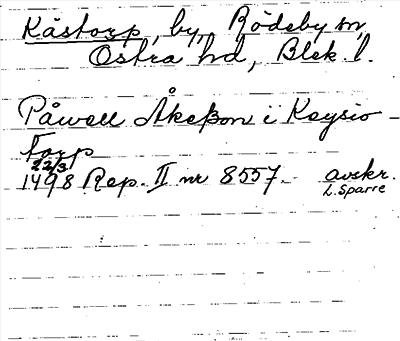 Kåstorp, by, Rödeby sn,
Östra hd, Blek. l.
Påwell Åkeßon i Keysio-
torp
22/3
1498 Rep. II nr 8557. avskr.
L. Sparre